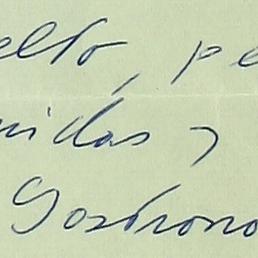 elto, pe
nidas y
Gastrono